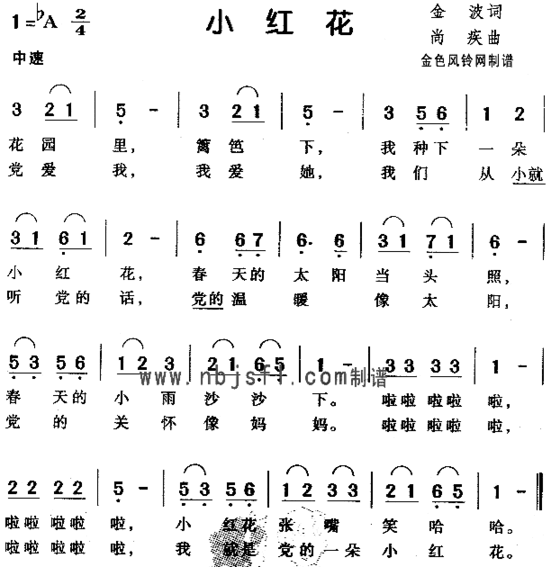 1=♭A 2/4 小红花 金波词
尚疾曲
中速 金色风铃网制谱
3 21 | 5 - | 3 21 | 5 - | 3 56 | 1 2
花园 里, 篱笆 下, 我种下一朵
党爱 我, 我爱 她, 我们 从小就
31 61 | 2 - | 6 67 | 6. 6 | 31 71 | 6 -
小红 花, 春天的 太阳 当头 照,
听党的 话, 党的温 暖 像太 阳,
53 56 | 12 3 | 21 65 | 1 - | 33 33 | 1 -
www.nbjsff.com制谱
春天的 小雨沙沙 下。 啦啦啦啦 啦,
党的 关怀像妈 妈。 啦啦啦啦 啦,
22 22 | 5 - | 53 56 | 12 33 | 21 65 | 1 - ‖
啦啦啦啦 啦, 小红花张嘴笑哈 哈。
啦啦啦啦 啦, 我就是党的一朵小红 花。